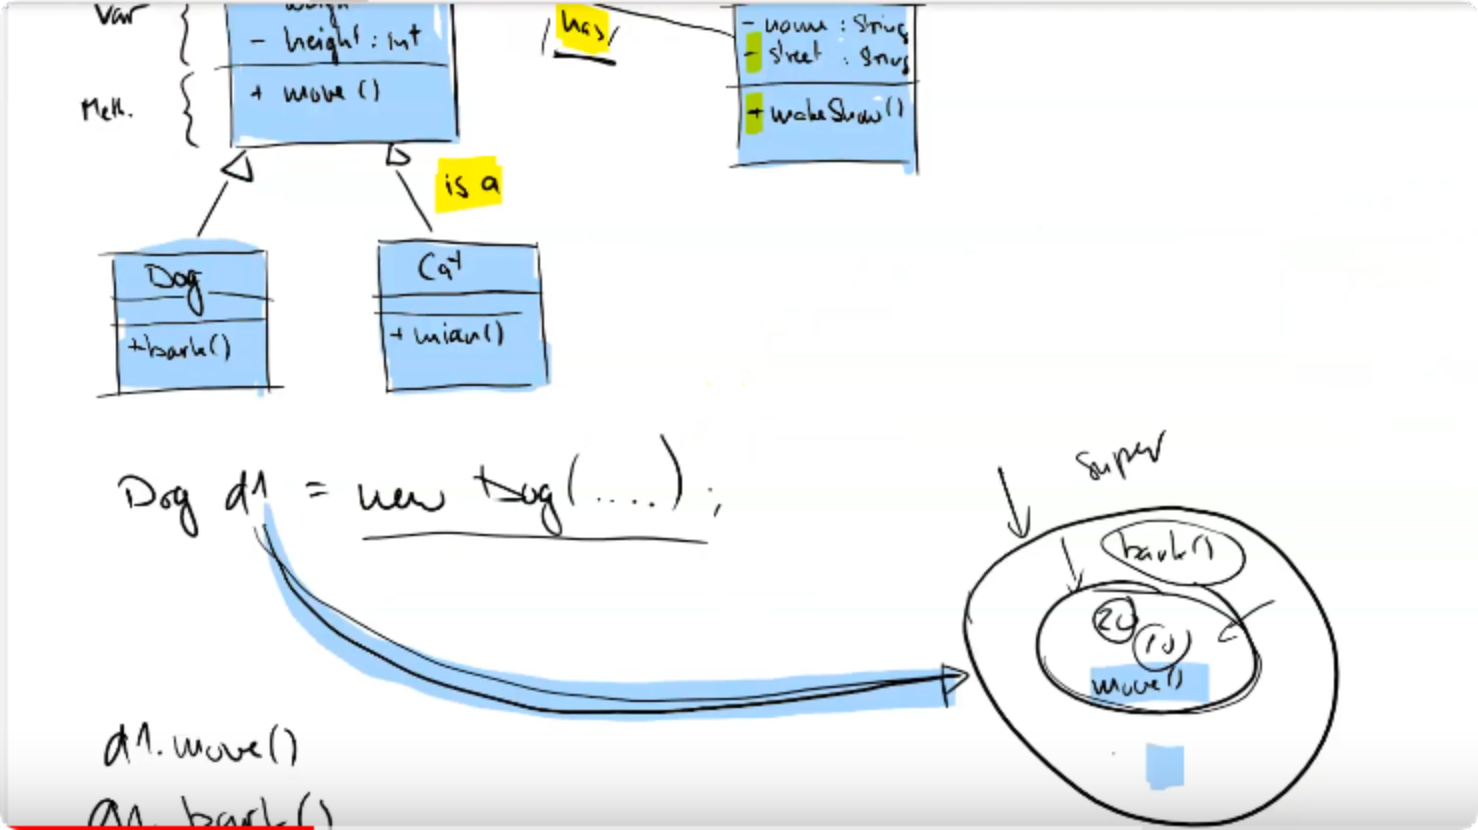 Var
- height : int
has
- name : String
- street : String
Meth.
+ move ()
+ makeShow()
is a
Dog
Cat
+bark()
+ miau()
Dog d1 = new Dog(....) ;
super
bark()
20
10
move()
d1.move()
d1.bark()